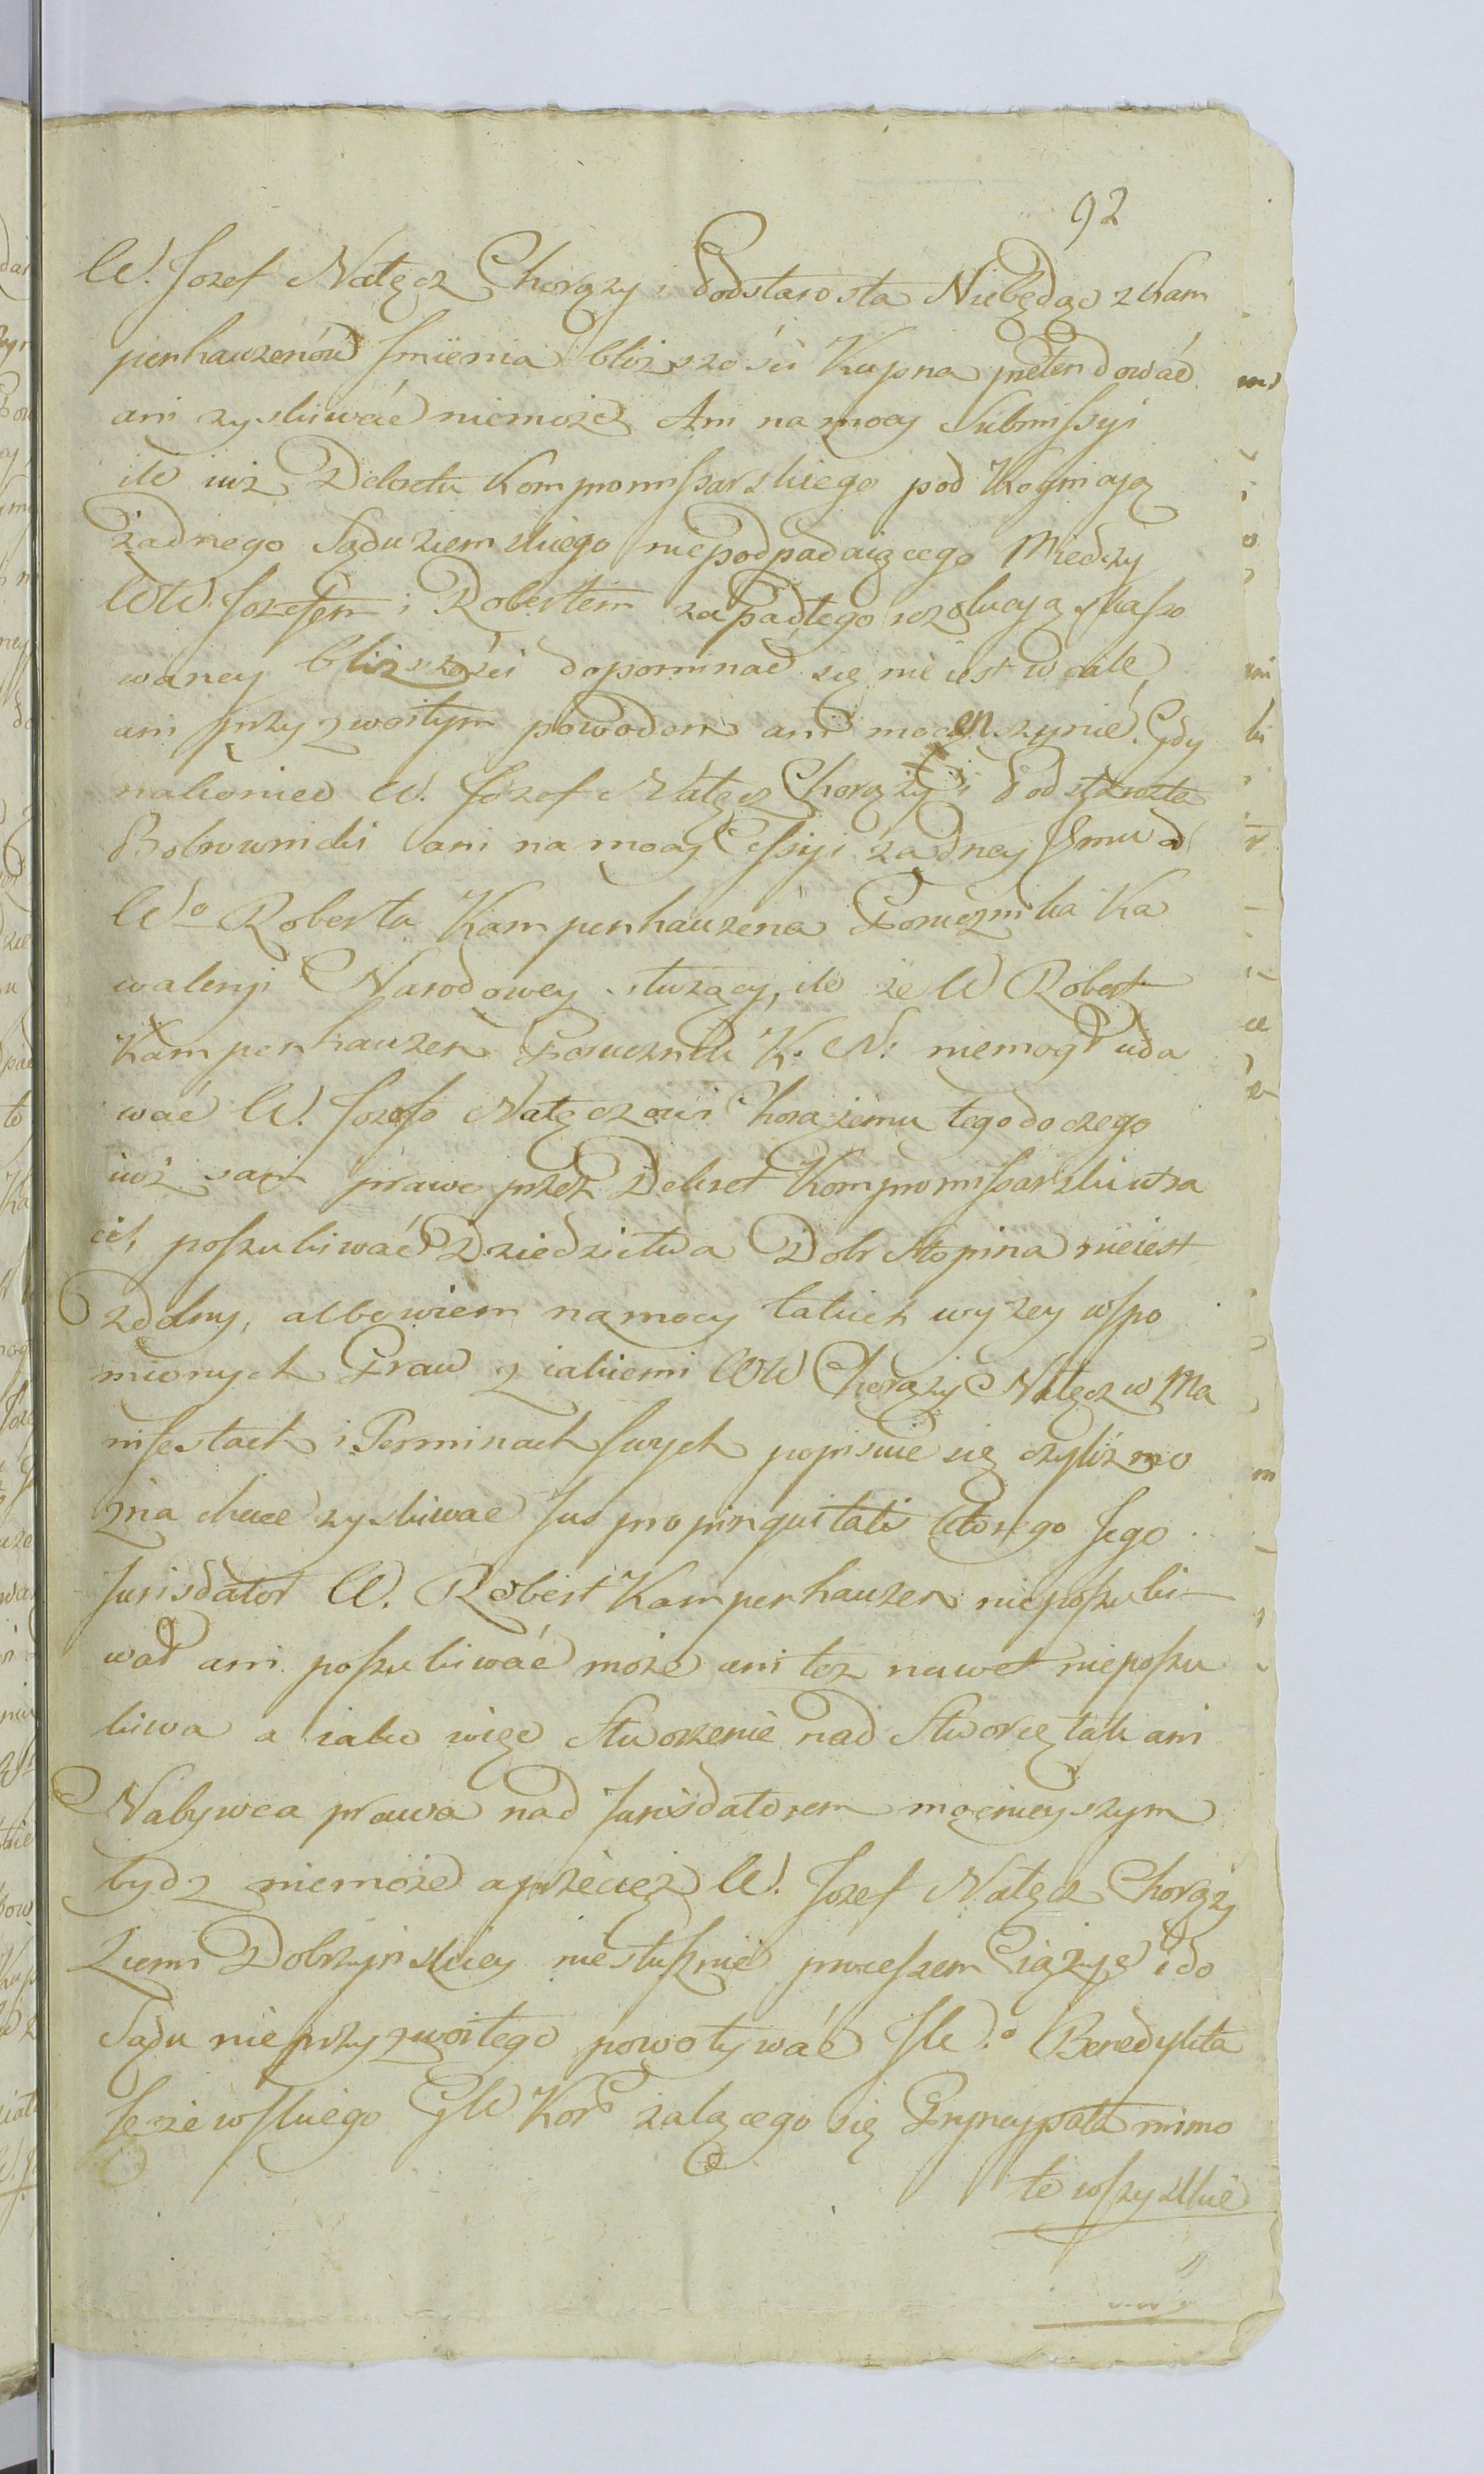 92
W. Jozef Nałęcz Chorąży i Podstarosta Niebędąc z Kam
penhauzenów Jmienia bliższości Kupna pretendować
ani zyskiwać niemoże Ani na mocy Submissyi
ile iuż Dekretu Kompromissarskiego pod Kognicyą
żadnego Sądu ziemskiego niepodpadaiącego Miedzy
WW. Jozefem i Robertem zapadłego rezolucyą skasso
waney bliższości dopominać się nie iest wcale
ani przyzwoitym powodem ani mocen czynić. Gdy
nakoniec W. Jozef Nałęcz Chorąży i Podstarosta
Bobrownicki ani na mocy Cessyi żadney Jmu od
Wo Roberta Kampenhauzena Porucznika Ka
waleryi Narodowey służący, ile że W Robert
Kampenhauzen Porucznik K. N. niemogł uda
wać W. Jozefo Nałęczowi Chorążemu tego do czego
iuż sam prawo przez Dekret Kompromissarski utra
cił, poszukiwać Dziedzictwa Dobr Stopina nieiest
zdolny, albowiem na mocy takich wyżey wspo
mionych Praw z iakiemi WW Chorąży Nałęcz w Ma
nifestach i Terminach swych popisuie się czyliż mo
żna chcieć zyskiwać Jus propinquitatis ktorego Jego
Jurisdator W. Robert Kampenhauzen nieposzuki-
wał ani poszukiwać może ani też nawet nieposzu
kiwa a iako więc Stworzenie nad Stworcę tak ani
Nabywca prawa nad Jurisdatorem mocnieyszym
bydz niemoże a przecież W. Jozef Nałęcz Chorąży
Ziemi Dobrzyńskiey niesłusznie processem Ciążyć i do
Sądu nieprzyzwoitego powoływać JW.o Benedykta
Jeżewskiego GW Kor żalącego się Pryncypała mimo
te wszystkie